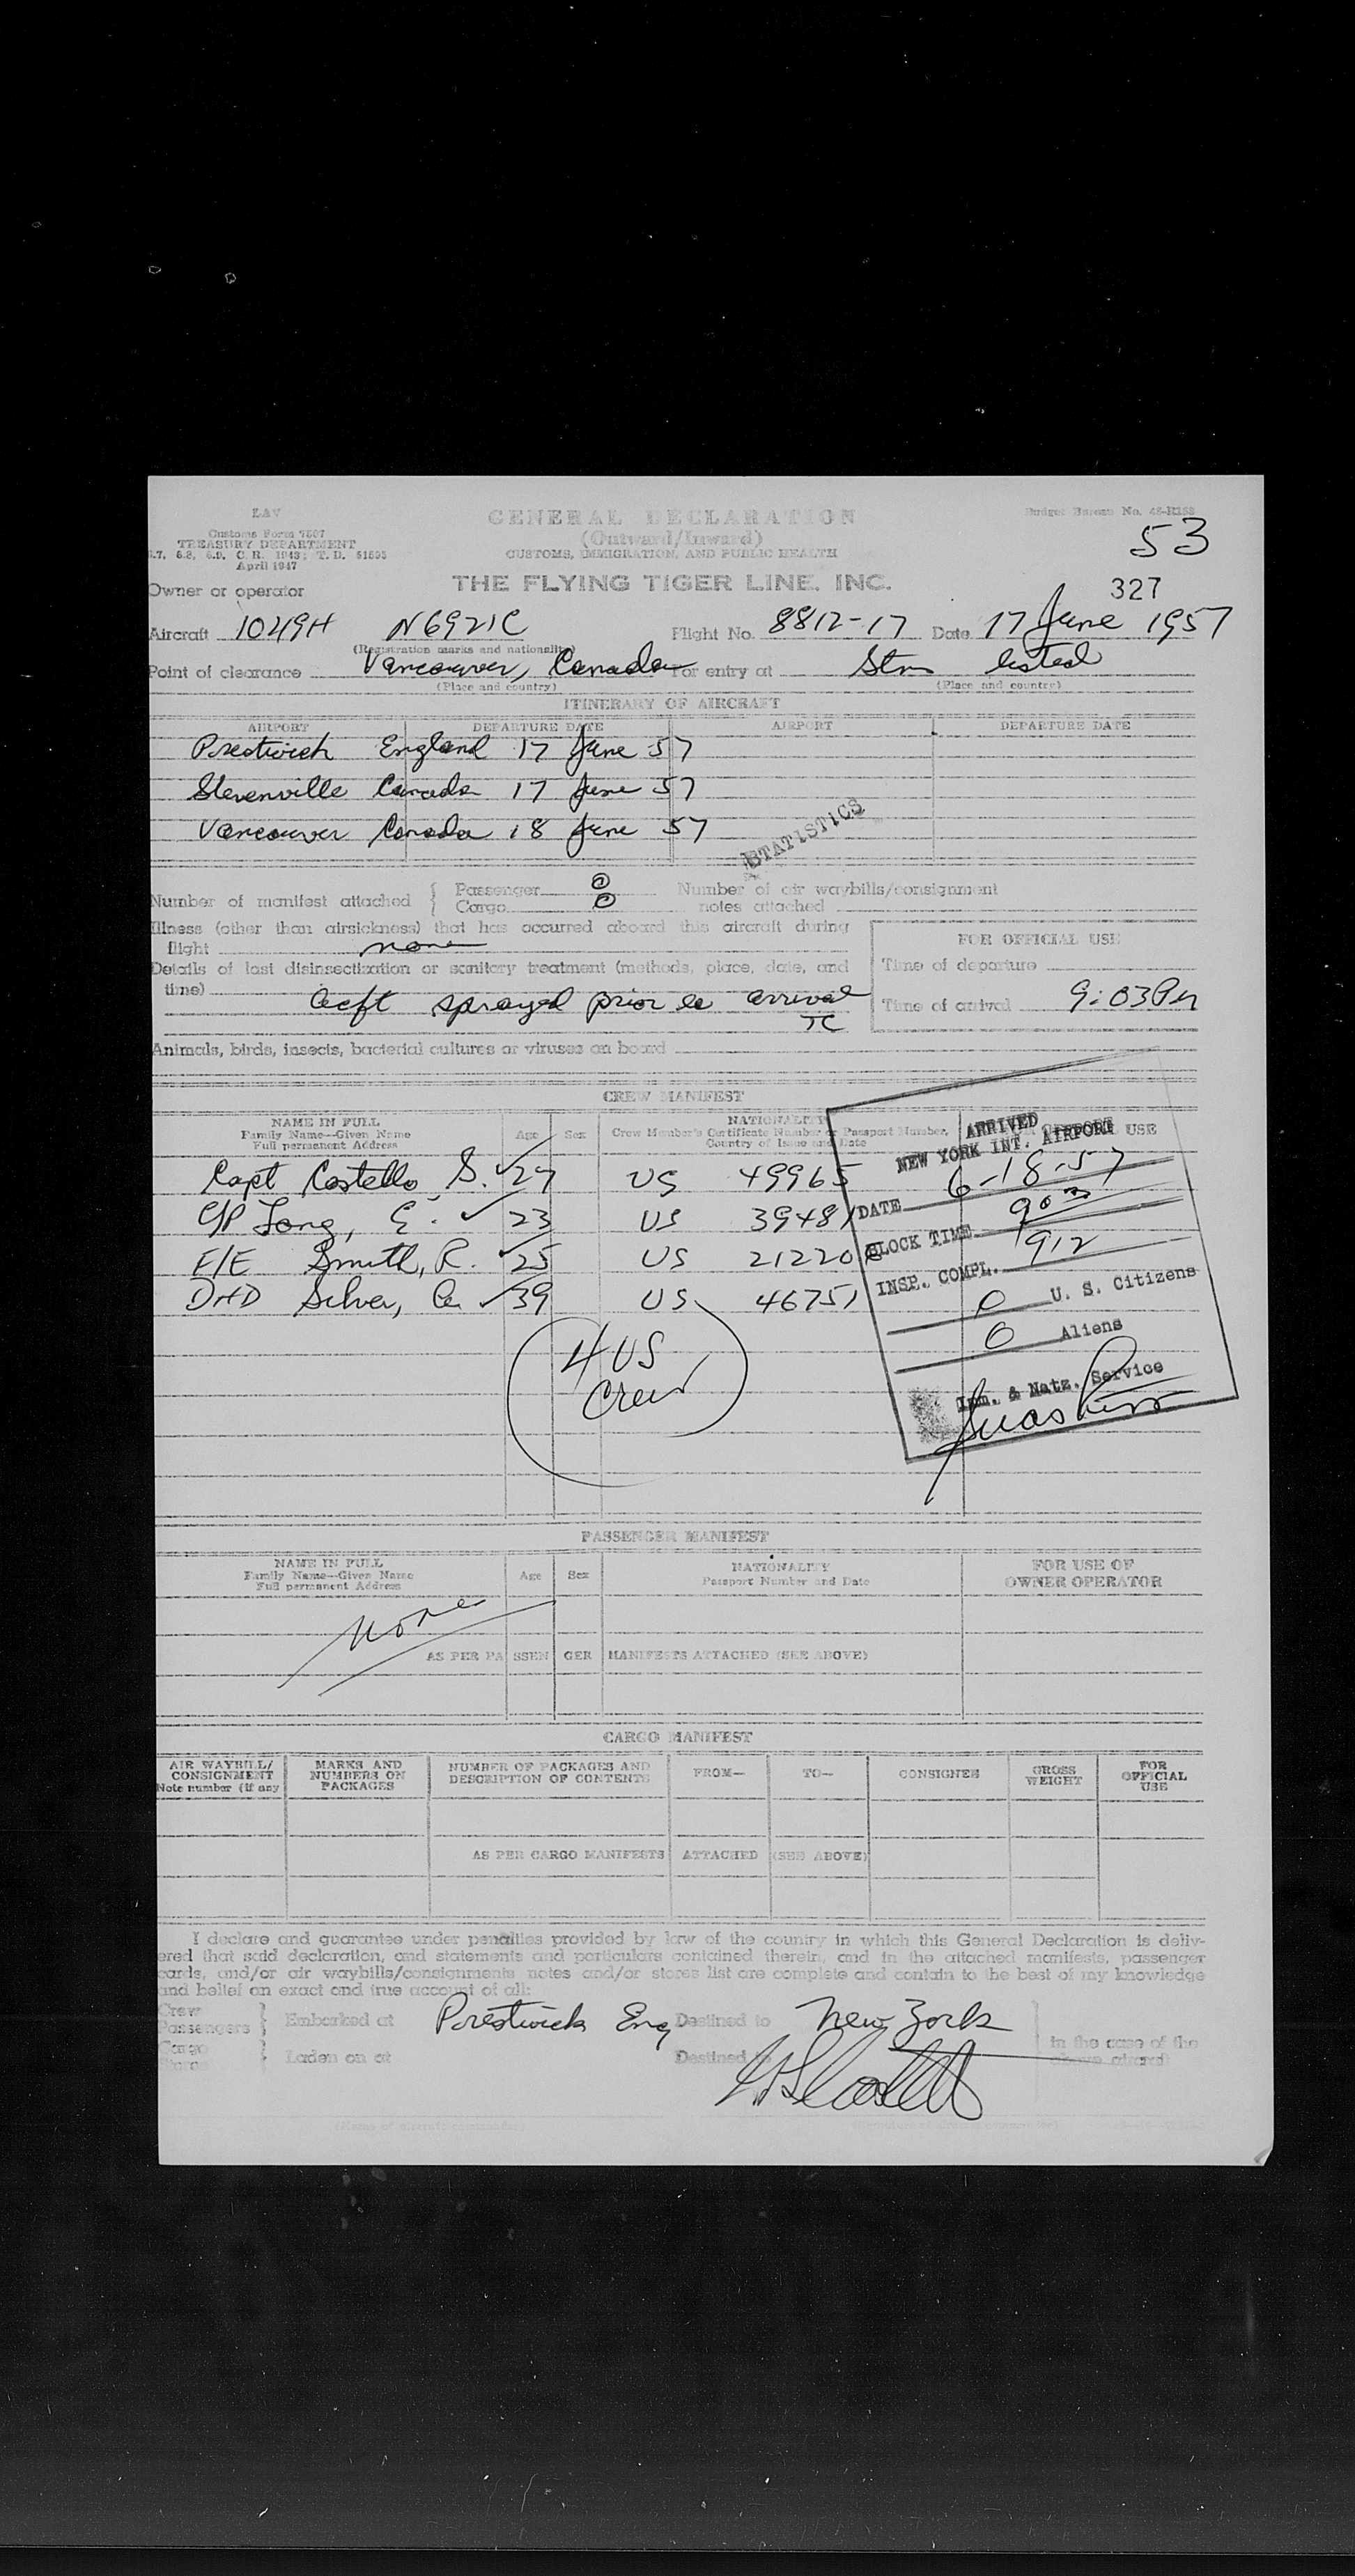 EAV
GENERAL DECLARATION
Budget Bureau No.
Customs Form 7507
(Outward/Inward)
53
TREASURY DEPARTMENT
CUSTOMS, IMMIGRATION, AND PUBLIC HEALTH
April 1947
THE FLYING TIGER LINE, INC.
327
Owner or operator
Aircraft 1049H N6921C Flight No. 8812-17 Date 17 June 1957
(Registration marks and nationality)
Point of clearance Vancouver, Canada For entry at Stns listed
(Place and country) (Place and country)
ITINERARY OF AIRCRAFT
AIRPORT DEPARTURE DATE AIRPORT DEPARTURE DATE
Prestwick England 17 June 57
Stevenville Canada 17 June 57
Vancouver Canada 18 June 57
STATISTICS
Number of manifest attached { Passenger 0 Number of air waybills/consignment
Cargo 0 notes attached
Illness (other than airsickness) that has occurred aboard this aircraft during
flight none
FOR OFFICIAL USE
Details of last disinsectization or sanitary treatment (methods, place, date, and
time) acft sprayed prior to arrival
Time of departure
Time of arrival 9:03 Pm
Animals, birds, insects, bacterial cultures or viruses on board
CREW MANIFEST
NAME IN FULL
Family Name—Given Name
Full permanent Address
Age
Sex
NATIONALITY
Crew Member's Certificate Number or Passport Number,
Country of Issue and Date
USE
Capt Costello, S. 27 US 49965
C/P Long, E. 23 US 39481
F/E Smith, R. 25 US 21220
DHD Silver, 39 US 46751
4 US
Crew
ARRIVED
NEW YORK INT. AIRPORT
DATE 6-18-57
BLOCK TIME 903
INSP. COMPL. 912
0 U. S. Citizens
0 Aliens
Imm. & Natz. Service
PASSENGER MANIFEST
NAME IN FULL
Family Name—Given Name
Full permanent Address
Age
Sex
NATIONALITY
Passport Number and Date
FOR USE OF
OWNER OPERATOR
None
AS PER PASSENGER MANIFESTS ATTACHED (SEE ABOVE)
CARGO MANIFEST
AIR WAYBILL/
CONSIGNMENT
Note number (if any
MARKS AND
NUMBERS ON
PACKAGES
NUMBER OF PACKAGES AND
DESCRIPTION OF CONTENTS
FROM—
TO—
CONSIGNEE
GROSS
WEIGHT
FOR
OFFICIAL
USE
AS PER CARGO MANIFESTS ATTACHED (SEE ABOVE)
I declare and guarantee under penalties provided by law of the country in which this General Declaration is deliv-
ered that said declaration, and statements and particulars contained therein, and in the attached manifests, passenger
cards, and/or air waybills/consignments notes and/or stores list are complete and contain to the best of my knowledge
and belief an exact and true account of all:
Crew
Passengers } Embarked at Prestwick Eng Destined to New York
Cargo } Laden on at Destined to
in the case of the
above aircraft